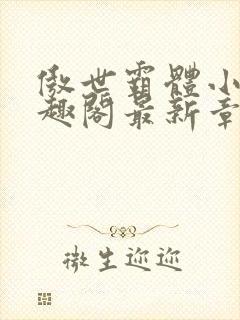 傲世霸體小
趣閣最新章
微生迎迎